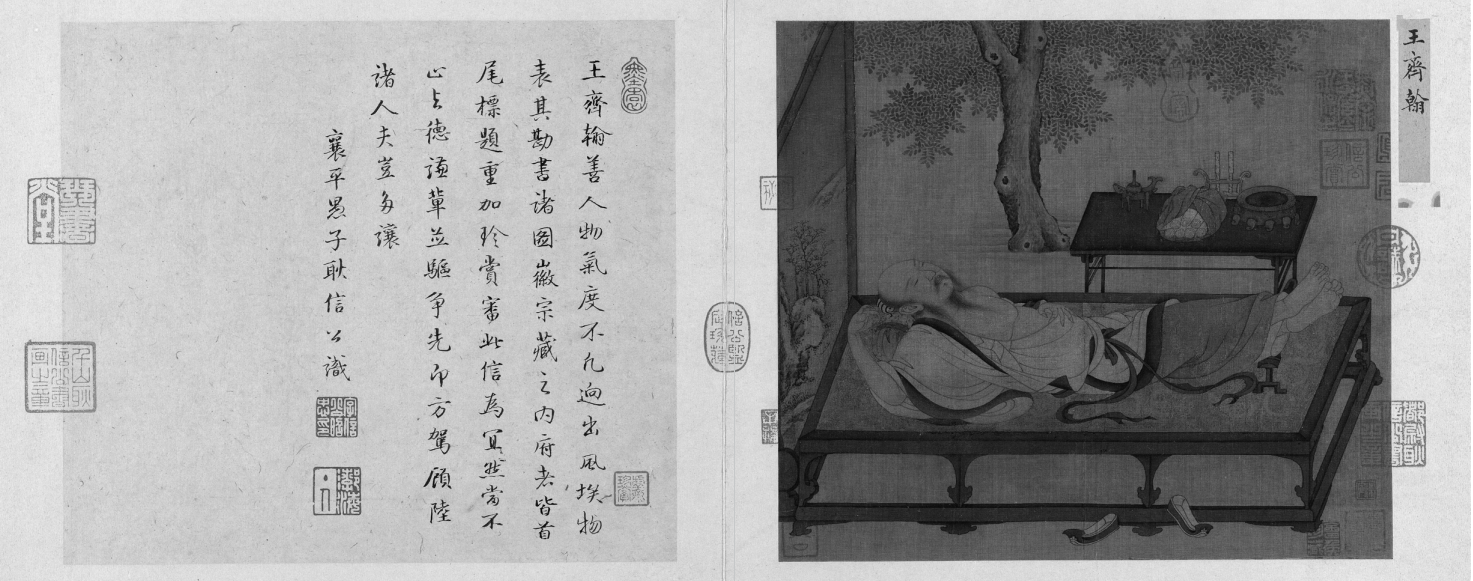 王齊翰
王齊翰善人物氣度不凡迥出風埃物
表其勘書諸圖徽宗藏之內府者皆首
尾標題重加珍賞審此信為冝然當不
止与德謙輩並驅争先即方駕顧陸
諸人夫豈多讓
襄平愚子耿信公識
琴書堂